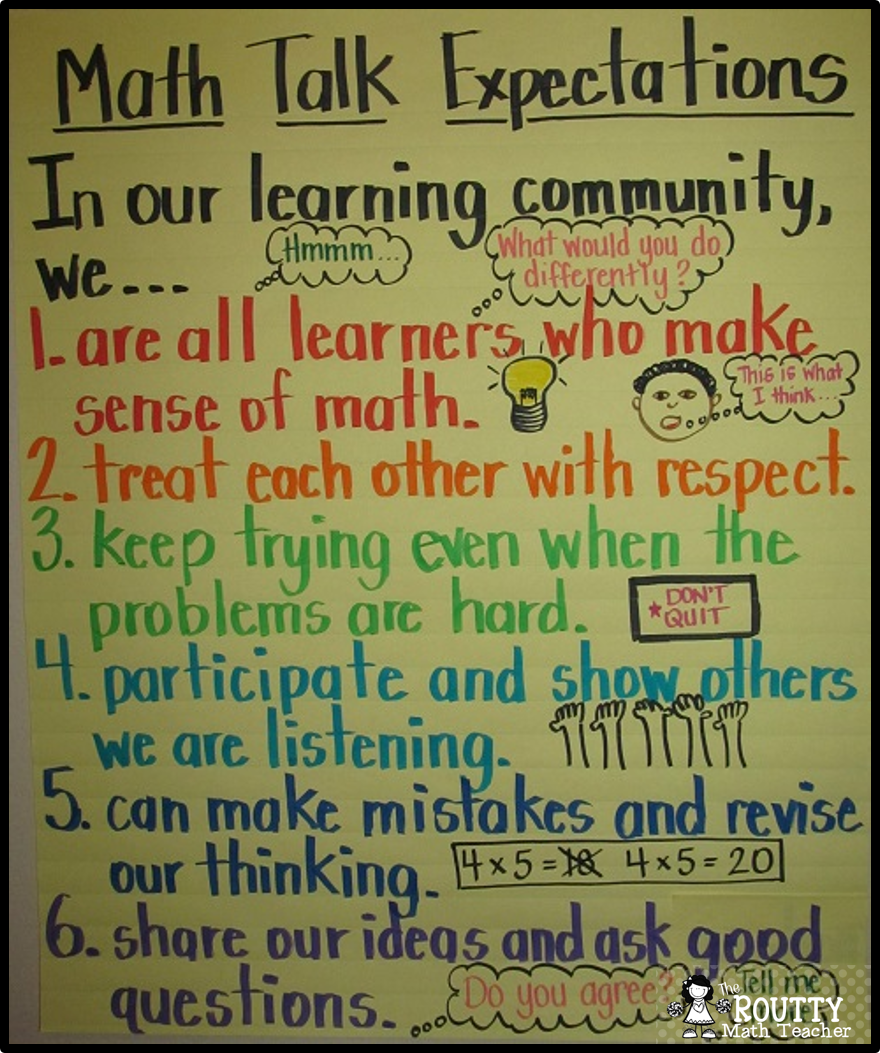 Math Talk Expectations
In our learning community,
we...
Hmmm...
What would you do
differently?
1. are all learners who make
sense of math.
This is what
I think...
2. treat each other with respect.
3. keep trying even when the
problems are hard.
* DON'T
QUIT
4. participate and show others
we are listening.
5. can make mistakes and revise
our thinking.
4 x 5 = 18 4 x 5 = 20
6. share our ideas and ask good
questions.
Do you agree?
Tell me
The
ROUTTY
Math Teacher